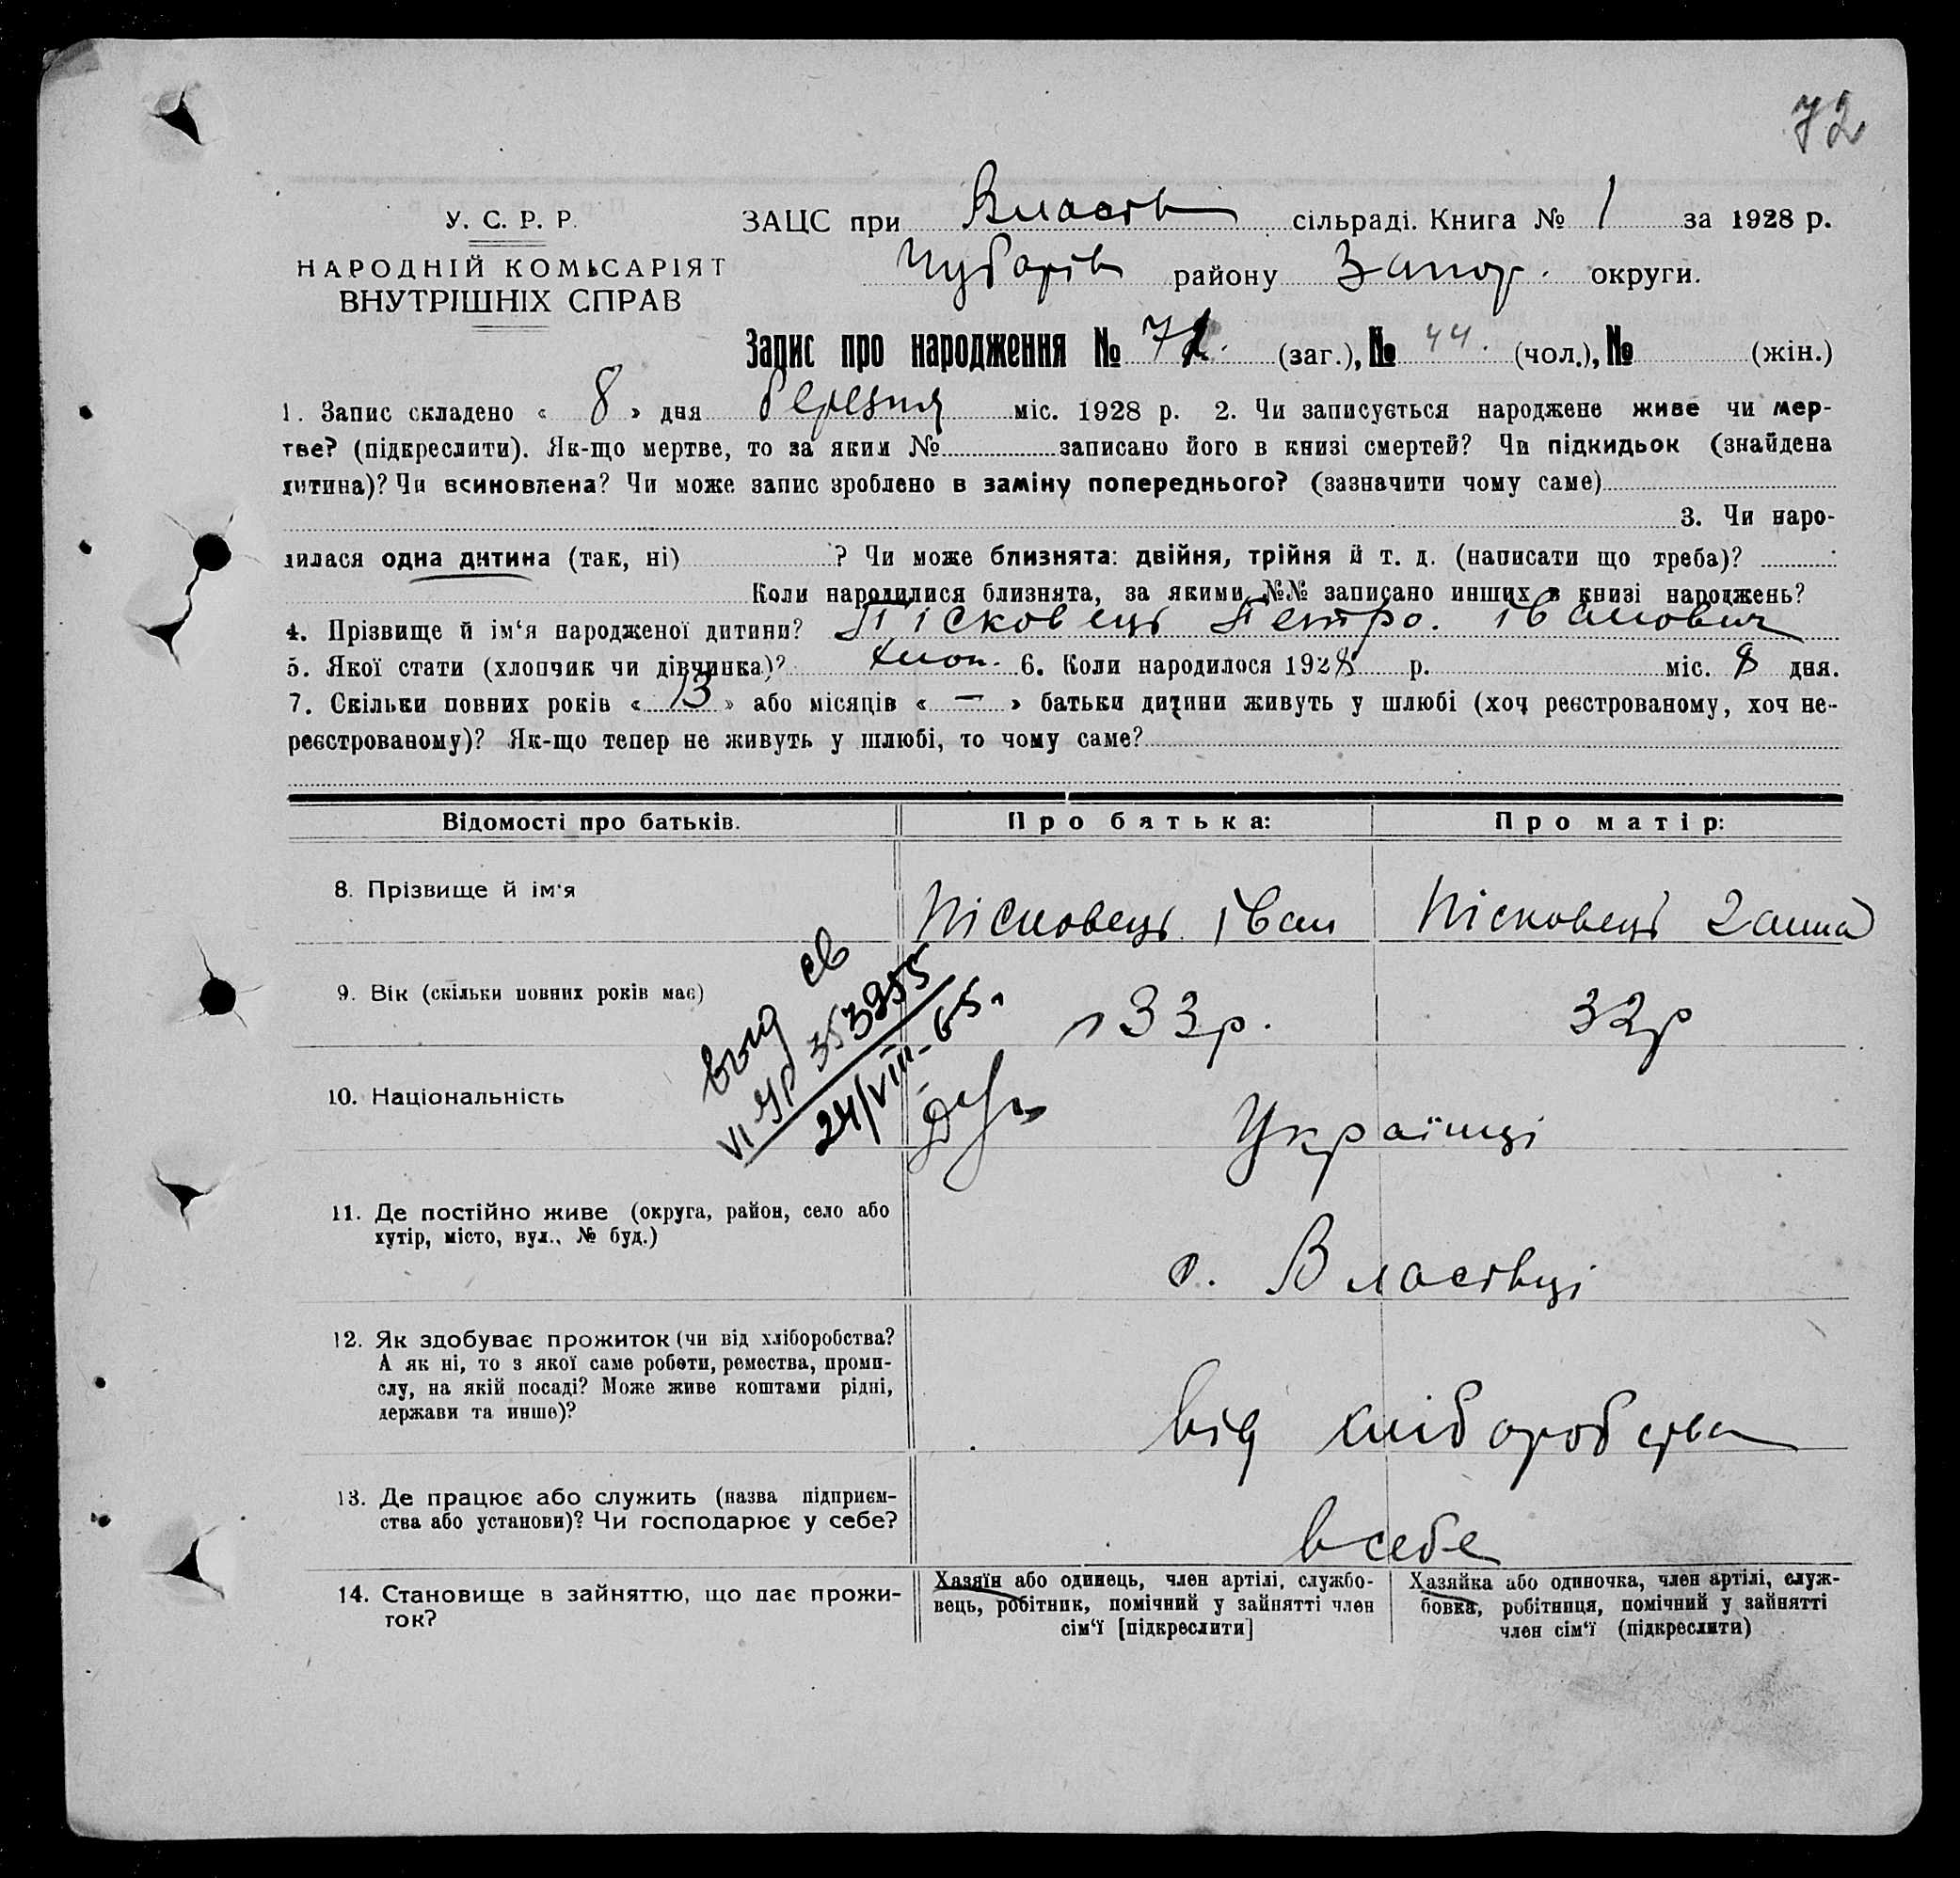 72
У. С. Р. Р.
НАРОДНІЙ КОМІСАРІЯТ
ВНУТРІШНІХ СПРАВ
ЗАЦС при Власів сільраді. Книга № 1 за 1928 р.
Чубарів району Запор. округи.
Запис про народження № 72. (заг.), № 44. (чол.), № (жін.)
1. Запис складено « 8 » дня березня міс. 1928 р. 2. Чи записується народжене живе чи мер-
тве? (підкреслити). Як-що мертве, то за яким № записано його в книзі смертей? Чи підкидьок (знайдена
дитина)? Чи всиновлена? Чи може запис зроблено в заміну попереднього? (зазначити чому саме)
3. Чи наро-
дилася одна дитина (так, ні) ? Чи може близнята: двійня, трійня й т. д. (написати що треба)?
Коли народилися близнята, за якими №№ записано инших в книзі народжень?
4. Прізвище й ім‘я народженої дитини? Пісковець Петро. Іванович
5. Якої стати (хлопчик чи дівчинка)? хлоп. 6. Коли народилося 1928 р. міс. 8 дня.
7. Скільки повних років « 13 » або місяців « — » батьки дитини живуть у шлюбі (хоч реєстрованому, хоч не-
реєстрованому)? Як-що тепер не живуть у шлюбі, то чому саме?
Відомості про батьків. Про батька: Про матір:
8. Прізвище й ім‘я Пісковець Іван Пісковець Ганна
9. Вік (скільки повних років має) 33р. 32р
выд св
VI-УР 353955
24/VIII-65.
10. Національність Українці
11. Де постійно живе (округа, район, село або
хутір, місто, вул., № буд.)
с. Власівці
12. Як здобуває прожиток (чи від хліборобства?
А як ні, то з якої саме роботи, ремества, проми-
слу, на якій посаді? Може живе коштами рідні,
держави та инше)?
від хліборобства
13. Де працює або служить (назва підприєм-
ства або установи)? Чи господарює у себе?
в себе
14. Становище в зайняттю, що дає прожи-
ток?
Хазяїн або одинець, член артілі, службо-
вець, робітник, помічний у зайнятті член
сім‘ї [підкреслити]
Хазяйка або одиночка, член артілі, служ-
бовка, робітниця, помічний у зайнятті
член сім‘ї (підкреслити)